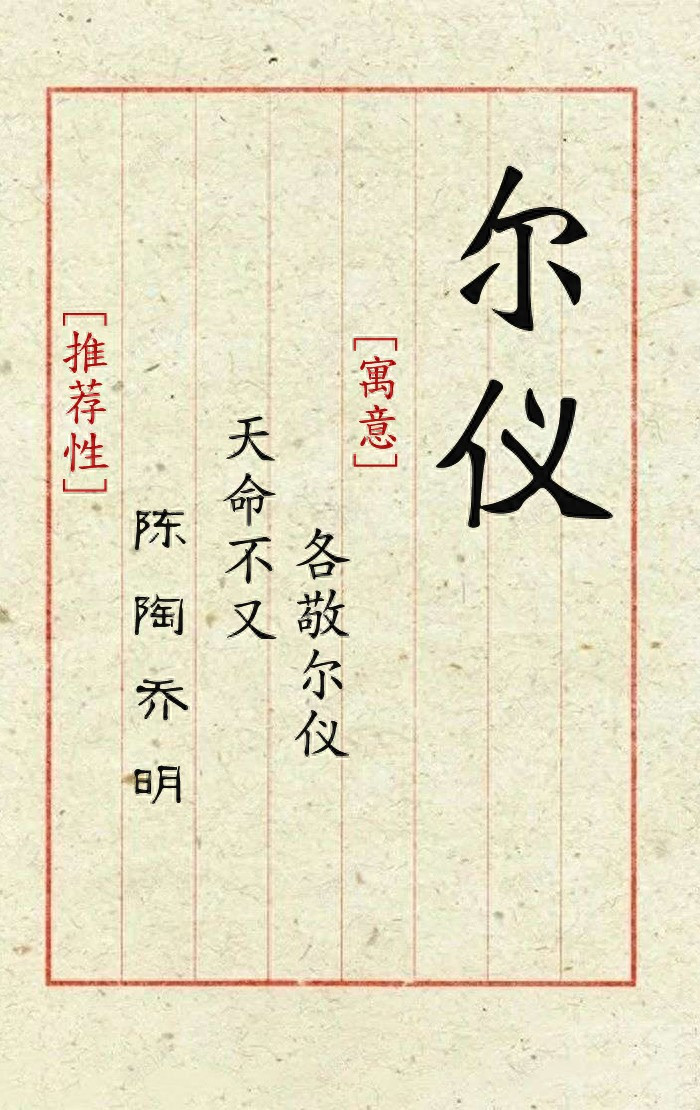 尔仪
[寓意]
各敬尔仪
天命不又
陈陶乔明
[推荐性]